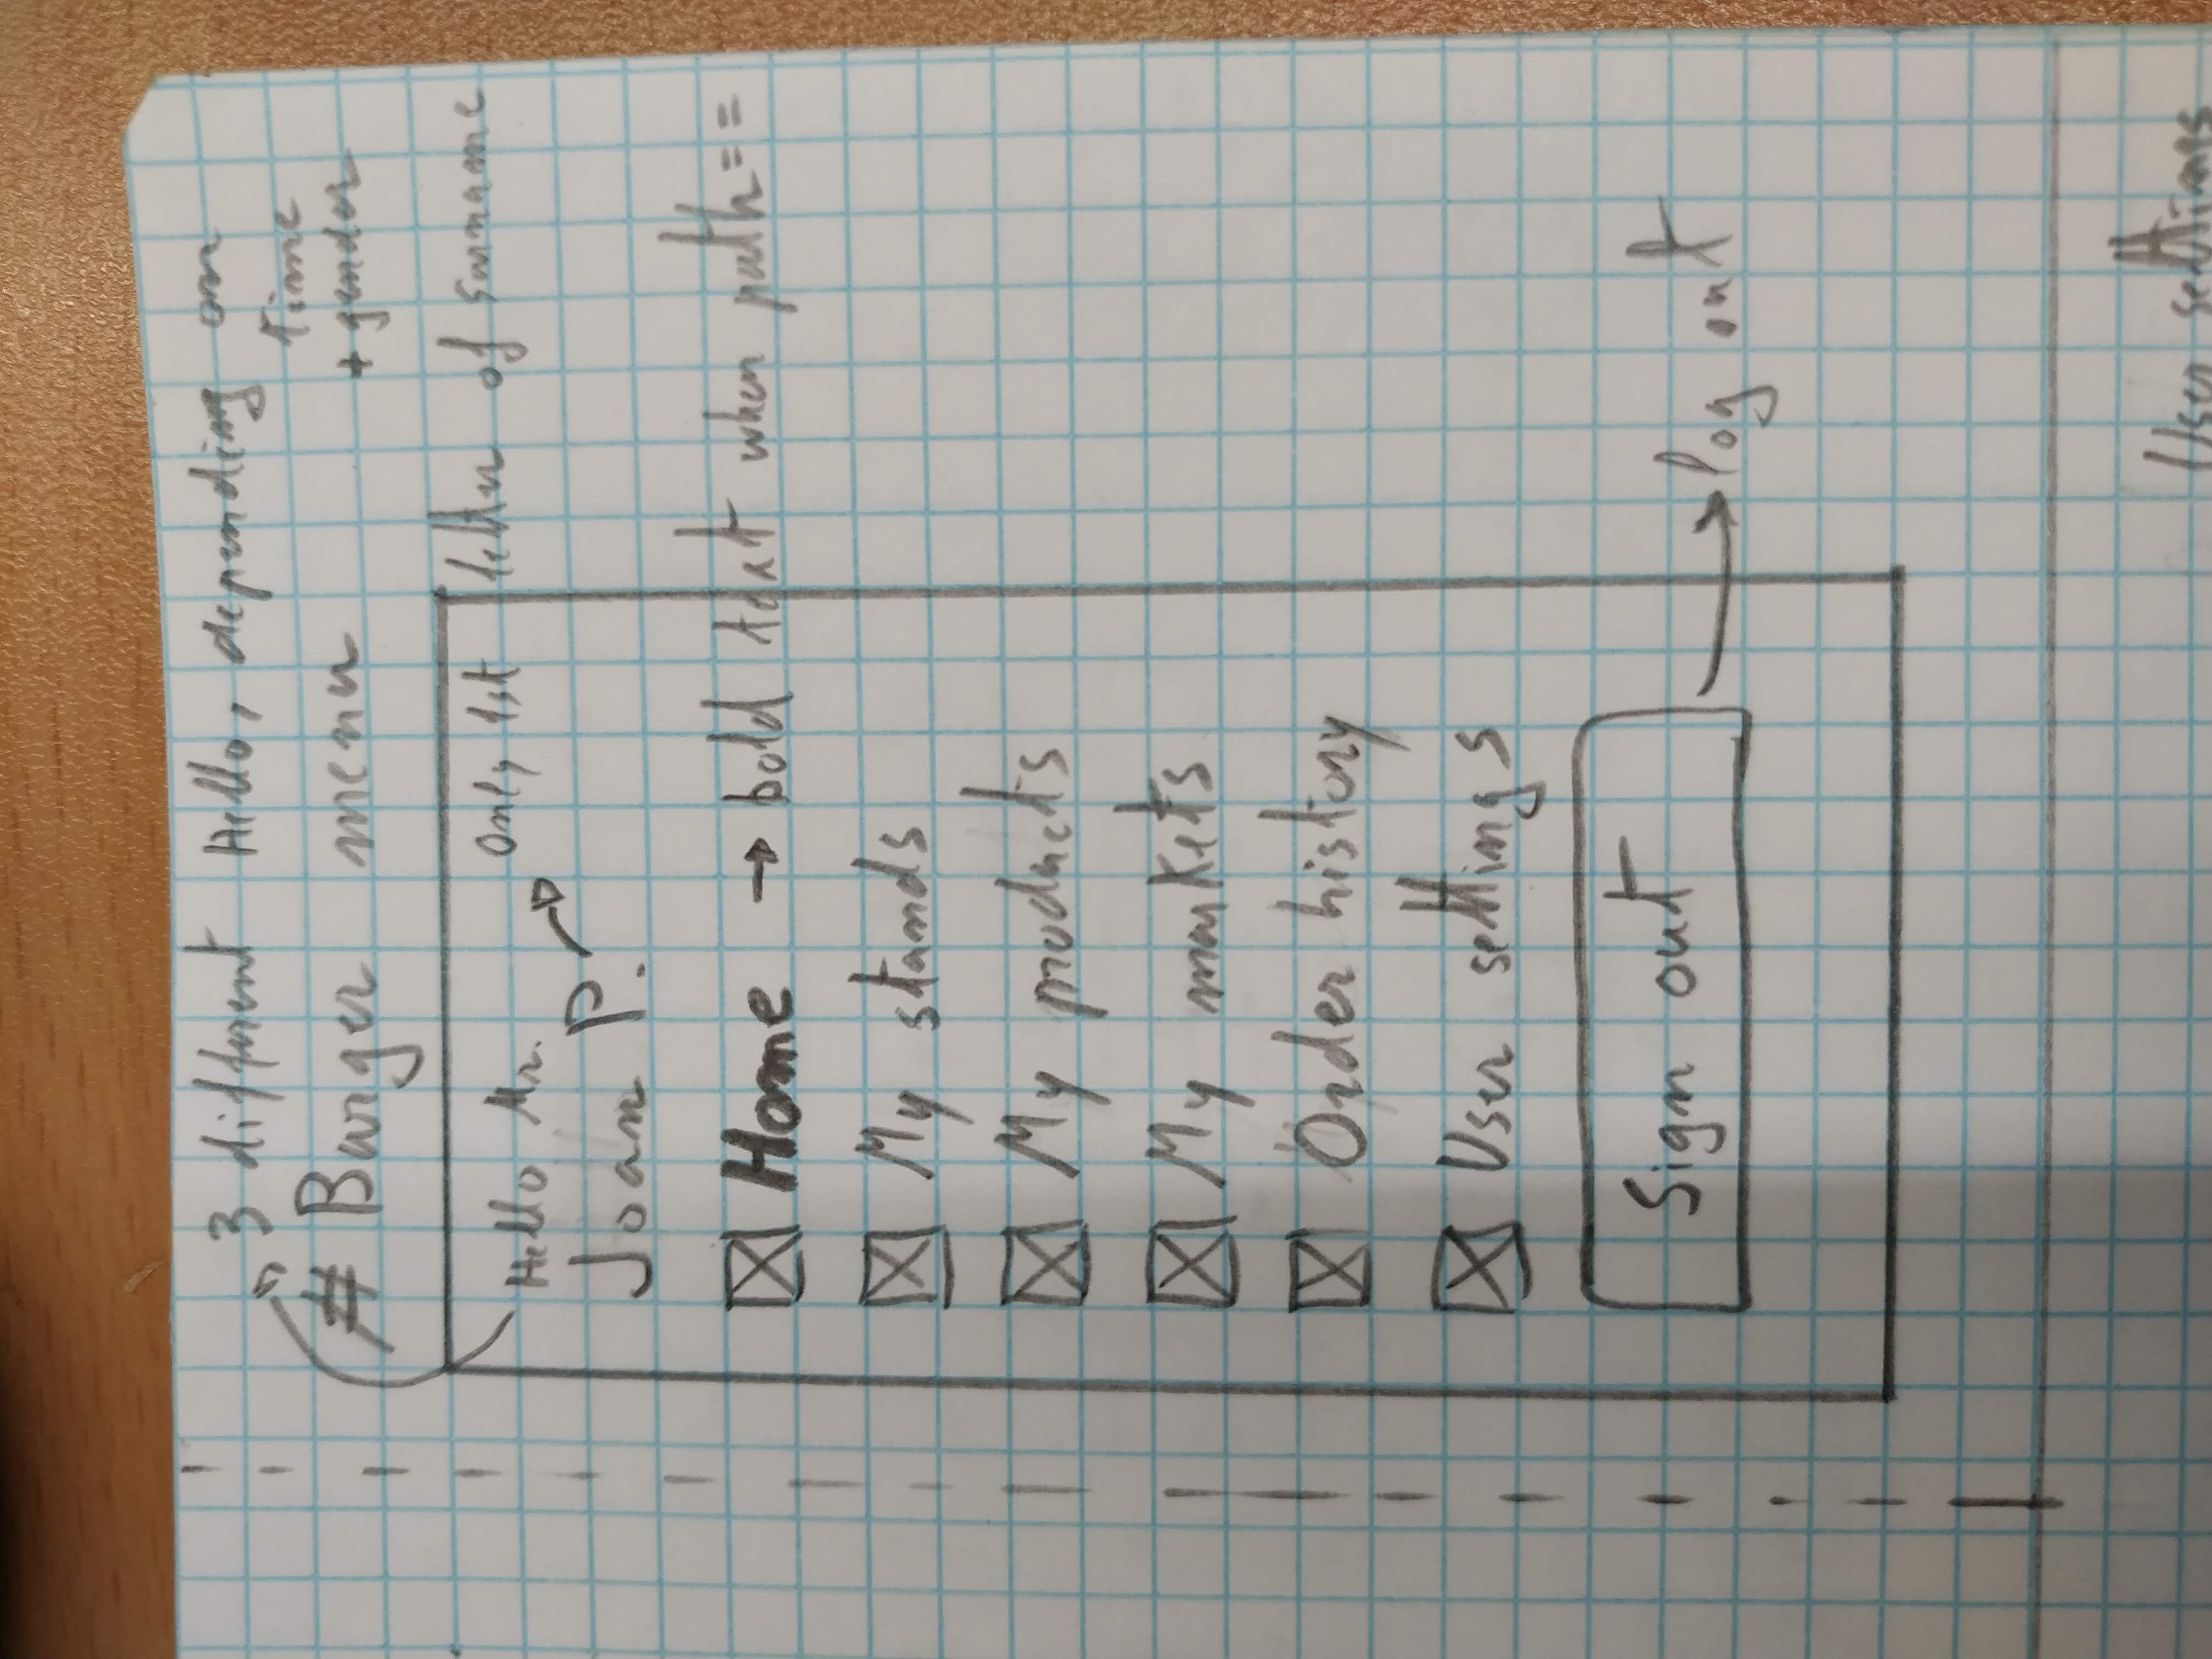 3 different Hello, depending on
time
# Burger menu + gender
Hello Mr. only 1st letter of surname
Joan P.
Home → bold text when path ==
My stands
My products
My markets
Order history
User settings
Sign out
log out
User settings